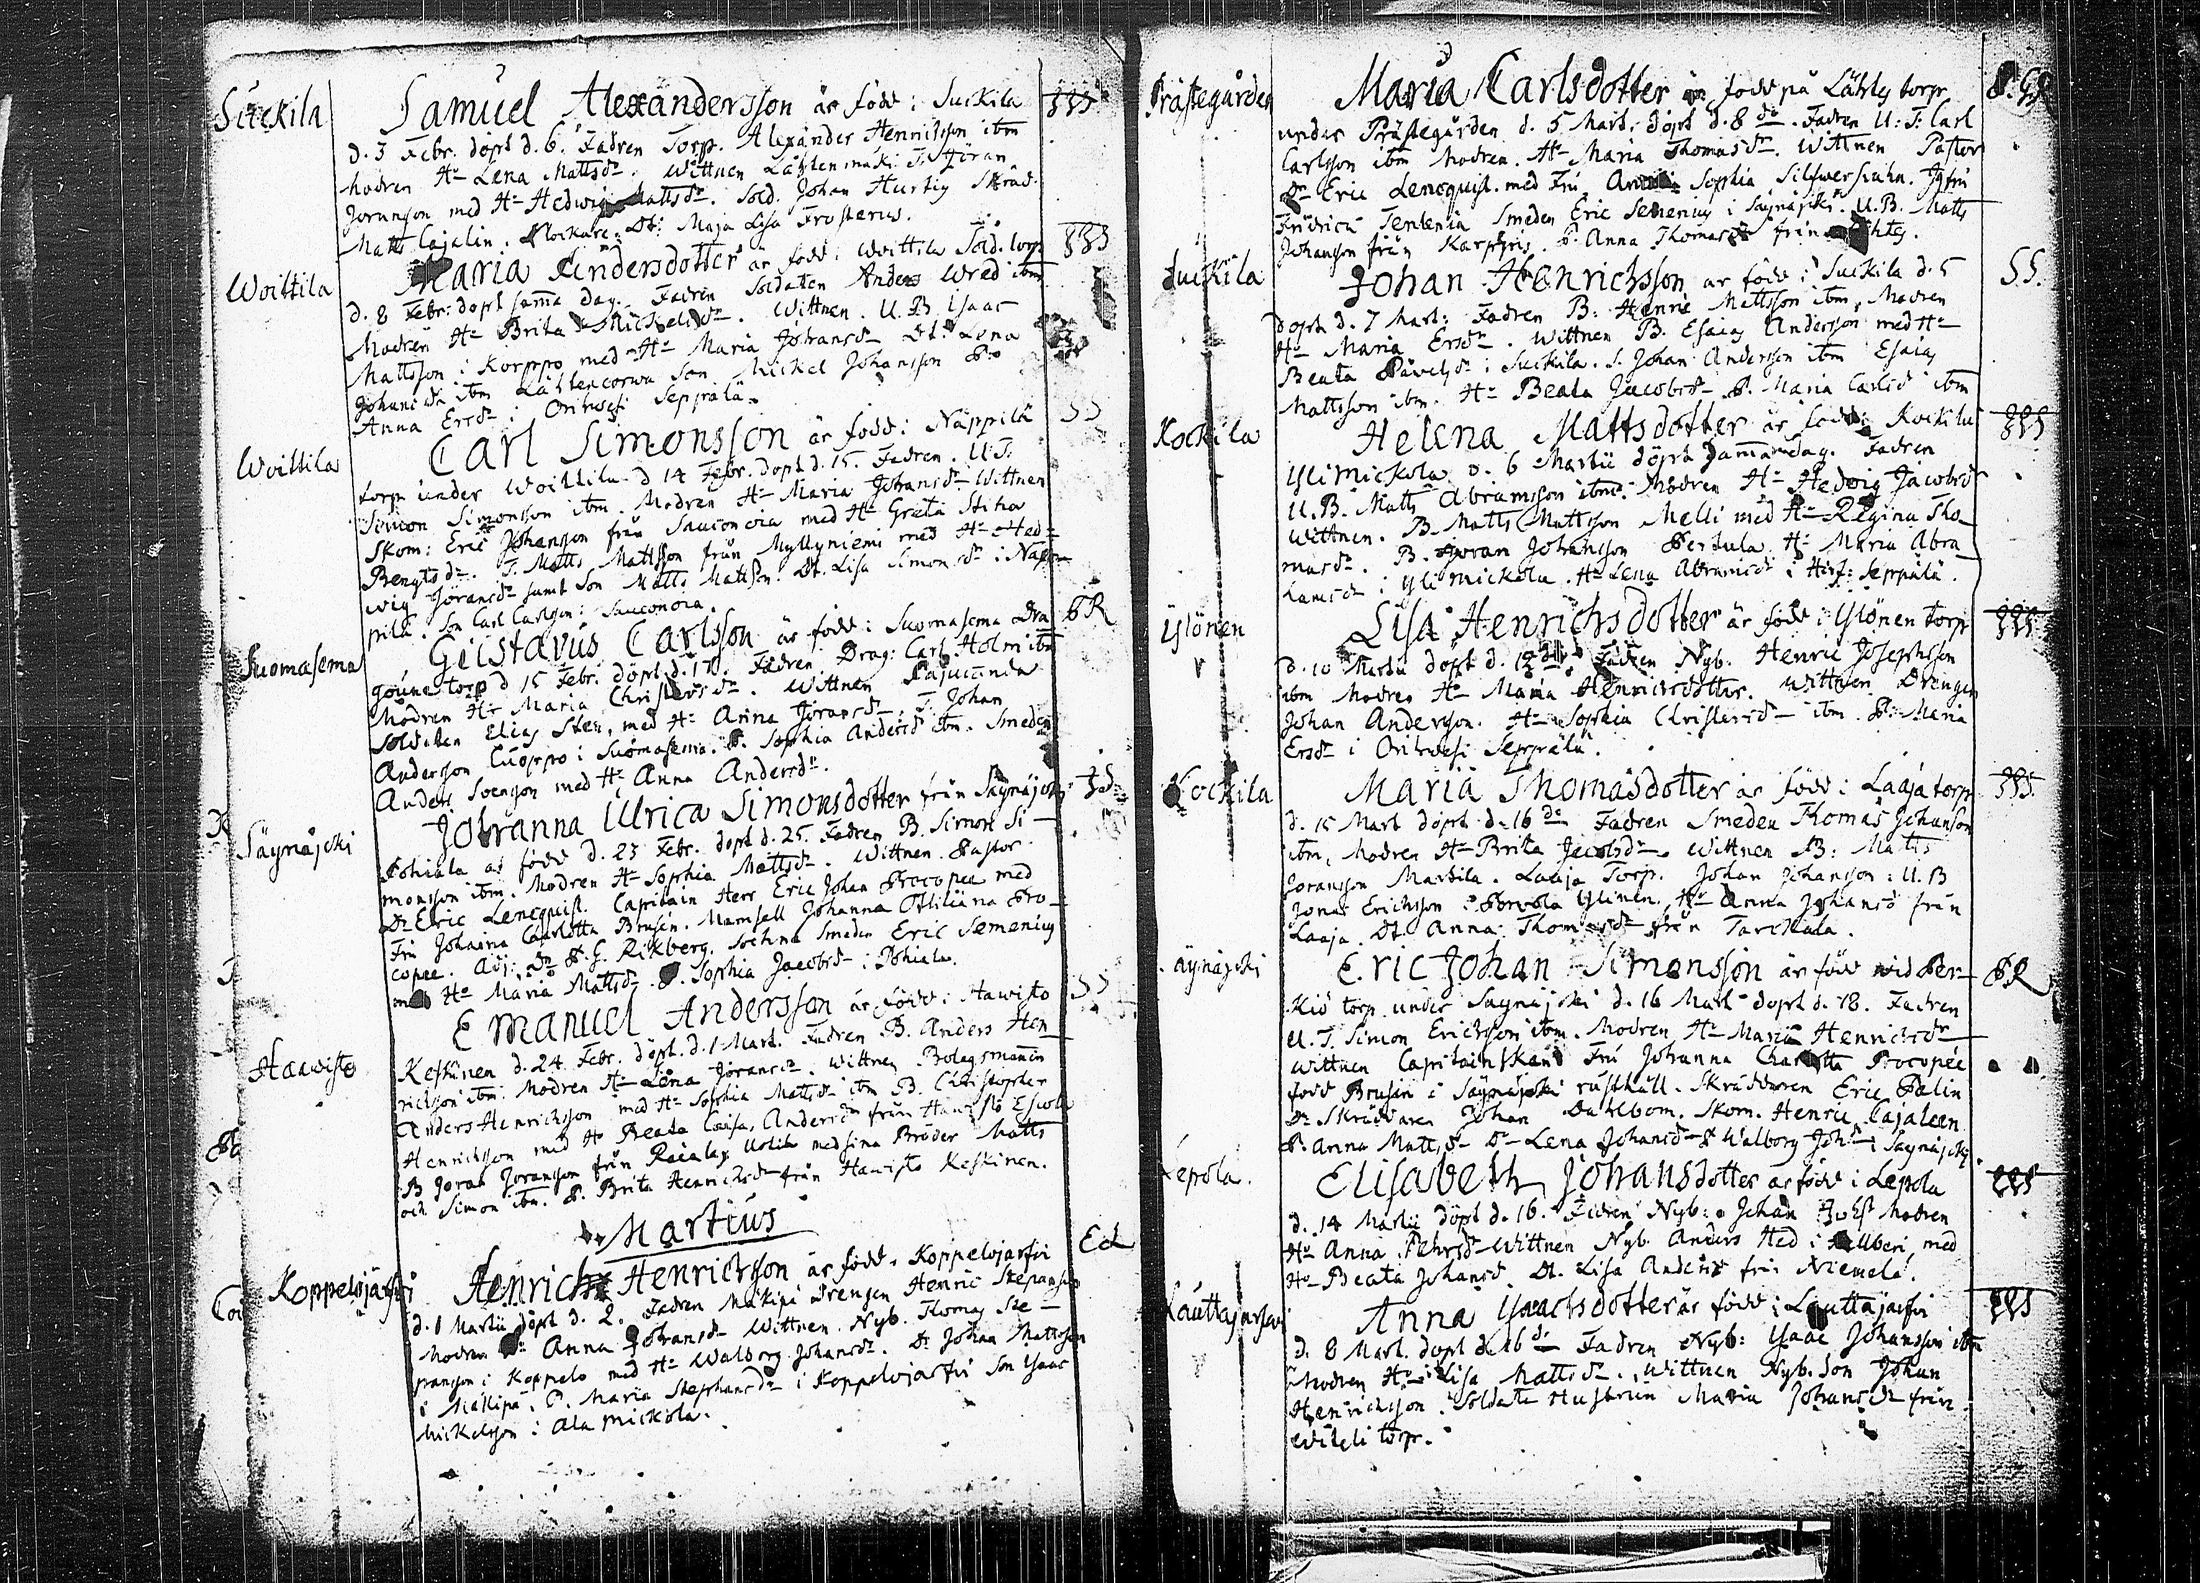 Suckila
Samuel Alexandersson är född i Suckila
d. 3 Febr. döpt d. 6. Fadren Torp. Alexander Henrichsson ibm
Modren Hu Lena Mattsdr. Wittnen Lähtenmäki T. Jöran
Joransson med Hu Hedwig Mattsdr. Sold. Johan Hurtig Skräd.
Matts Cajalin. Klockare Dr. Maja Lisa Frosterus.
Woittila
Maria Andersdotter är född i Woittila Sold. torp
d. 8 Febr: döpt samma dag. Fadren Soldaten Anders Wred ibm
Modren Hu Brita Mickelsdr. Wittnen. U.B. Isaac
Mattsson i Korppo med Hu Maria Johansdr Dr. Lena
Johansdr ibm Lähtencorwa Son Mickel Johansson P.
Anna Ersdr i Orihwesi Seppälä.
SS
Woittila
Carl Simonsson är född i Näppilä
torp under Woittila d 14 Febr. döpt d. 15. Fadren. U.T.
Simon Simonsson ibm. Modren Hu Maria Johansdr Wittnen
Skom: Eric Johansson från Sauconoja med Hu Greta Stina
Bengtsdr. T. Matts Mattsson från Myllyniemi med Hu Hed-
wig Joransdr samt Son Matts Mattson. Dt. Lisa Simonsdr i Näp-
pilä. Son Carl Carlsson i Sauconoja.
PR
Suomasema
Gustavus Carlsson är född i Suomasema Dra
goune torp d 15 Febr. döpt d. 17. Fadren Drag: Carl Holm ibm
Modren Hu Maria Christersdr. Wittnen
Soldaten Elias Sten, med Hu Anna Joransdr. T. Johan
Andersson Cuoppo i Suomasema. P. Sophia Andersdr ibm. Smeden
Anders Svensson med Hu Anna Andersdr.
Säynäjoki
Johanna Ulrica Simonsdotter från Säynäjoki
Pohiala är född d. 23 Febr. döpt d. 25. Fadren B. Simon Si-
monsson ibm. Modren Hu Sophia Mattsdr. Wittnen. Pastor
Dn Eric Lencquist. Capitain Herr Eric Johan Procopee med
Fru Johanna Charlotta Brusin. Mamsell Johanna Pro-
copee. Adj: Dn P. G. Rikberg. Sochne Smeden Eric Semenius
med Hu Maria Mattsdr. P. Sophia Jacobsdr i Pohiala.
SS
Haawisto
Emanuel Andersson är född i Hawisto
Keskinen d. 24 Febr. döpt. d. 1 Mart. Fadren B. Anders Hen-
richsson ibm. Modren Hu Lena Joransdr. Wittnen Bolagsmannen
Anders Henrichsson med Hu Sophia Mattsdr ibm B. Christopher
Henrichsson med Hu Beata Lovisa Andersdr från Hawisto Escola
B Joran Joransson från med sina Bröder Matts
och Simon ibm. P. Brita Henrichsdr från Hawisto Keskinen.
Martius
Koppelojarfvi
Henrich Henricksson är född. Koppelojarfvi
d. 1 Martii döpt d. 2. Fadren Mäkipä Drengen Henric Stepansson
Modren Hu Anna Johansdr Wittnen Nyb. Thomas Ste-
pansson i Koppelo med Hu Walborg Johansdr. Dr Johan Mattsson
i Mäkipä. P. Maria Stephansdr i Koppelojarfvi Son Isaac
Mickelsson i Ala Mickola.
Prästegården
Maria Carlsdotter är född på Lähtes torp
under Prästegården d. 5 Mart: döpt d. 8 do. Fadren U: T: Carl
Carlsson ibm Modren. Hu Maria Thomasdr. Wittnen Pastor
Dn Eric Lencquist. med Fru Sophia Silfwersvahn. Jgfru
Fredrica Tenlenia Smeden Eric Semenius i Säynäjoki. U.B. Matts
Johansson från P. Anna Thomasdr från Lähtes.
Suckila
Johan Henrichsson är född i Suckila d. 5
SS.
döpt d. 7 Mart: Fadren B: Henric Mattsson ibm, Modren
Hu Maria Ersdr. Wittnen B. Esaias Andersson med Hu
Beata Påvelsdr i Suckila. S. Johan Andersson ibm Esaias
Mattsson ibm. Hu Beata Jacobsdr P. Maria Carlsdr ibm
Kockila
Helena Mattsdotter är född i Kockila
Ylimickola d. 6 Martii döpt samma dag. Fadren
U. B. Matts Abramsson ibm. Modren Hu Hedvig Jacobsdr
Wittnen. B. Matts Mattsson Melli med Hu Regina Tho-
masdr. B. Joran Johansson Pertula Hu Maria Abra-
hamsdr i Ylimickola. Hu Lena Abramsdr i Seppälä.
Ylönen
Lisa Henrichsdotter är född i Ylönen torp
d. 10 Martii döpt d. 12. Fadren Nyb. Henric Josephsson
ibm Modren Hu Maria Henrichsdotter. Wittnen Drengen
Johan Andersson. Hu Sophia Christersdr ibm. P. Maria
Ersdr i Orihwesi Seppälä.
Kockila
Maria Thomasdotter är född i Laaja torp
d. 15 Mart döpt d. 16 do Fadren Smeden Thomas Johansson
ibm, Modren Hu Brita Jacobsdr. Wittnen B: Matts
Joransson Marttila. Laaja Torp. Johan Johansson i U. B
Jonas Erichsson i Ylinen. Hu Anna Johansdr från
Laaja. Dt. Anna Thomasdr från Tarckala.
Säynäjoki
Eric Johan Simonsson är född wid Per-
PR
kiö torp under Säynäjoki d. 16 Mart döpt d. 18. Fadren
U. T. Simon Erichsson ibm. Modren Hu Maria Henrichsdr
Wittnen Capitainskan Fru Johanna Charlotta Procopée
född Brusin i Säynäjoki rusthåll. Skräddaren Eric Palin
Dr Skräddare Johan Dahlbom. Skom. Henric Cajaleen
P. Anna Mattsdr Dr Lena Johansdr P Walborg Johsdr i Säynäjoki.
Lepola.
Elisabeth Johansdotter är född i Lepola
d. 14 Martii döpt d. 16. Fadren Nyb: Johan Modren
Hu Anna Pehrsdr Wittnen Nyb. Anders Hed i med
Hu Beata Johansd. Dt. Lisa Andersdr från Niemelä.
Lauttajarfwi
Anna Isaacksdotter är född i Lauttajarfwi
d. 8 Mart. döpt d. 16 do Fadren Nyb: Isaac Johansson ibm
Modren Hu Lisa Mattsdr. Wittnen Nyb. Son Johan
Henrichsson. Soldate Hustrun Maria Johansdr från
torp.